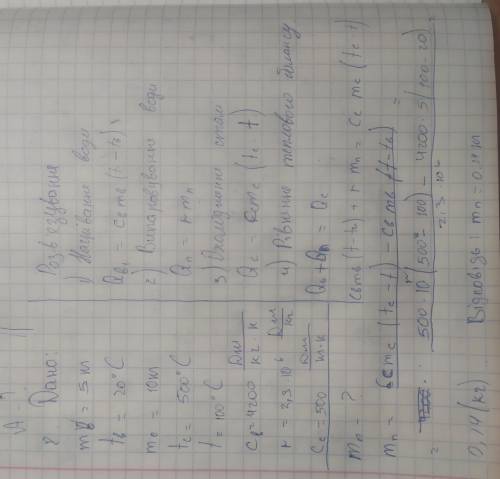 Дано:
mв = 5 кг
tв = 20°C
mс = 10 кг
tс = 500°C
t = 100°C
cв = 4200 Дж/кг·К
r = 2,3·10⁶ Дж/кг
Cс = 500 Дж/кг·К
mп - ?
Розв'язування
1) Нагрівання води
Qв = Cв mв (t - tв);
2) Випаровування води
Qп = r mп
3) Охолодження сталі
Qс = Cс mс (tс - t)
4) Рівняння теплового балансу
Qв + Qп = Qс
Cв mв (t - tв) + r mп = Cс mс (tс - t)
mп = Cс mс (tс - t) - Cв mв (t - tв) / r =
= 500·10 (500° - 100) - 4200·5 (100 - 20) / 2,3·10⁶ =
0,14 (кг) Відповідь: mп = 0,14 кг